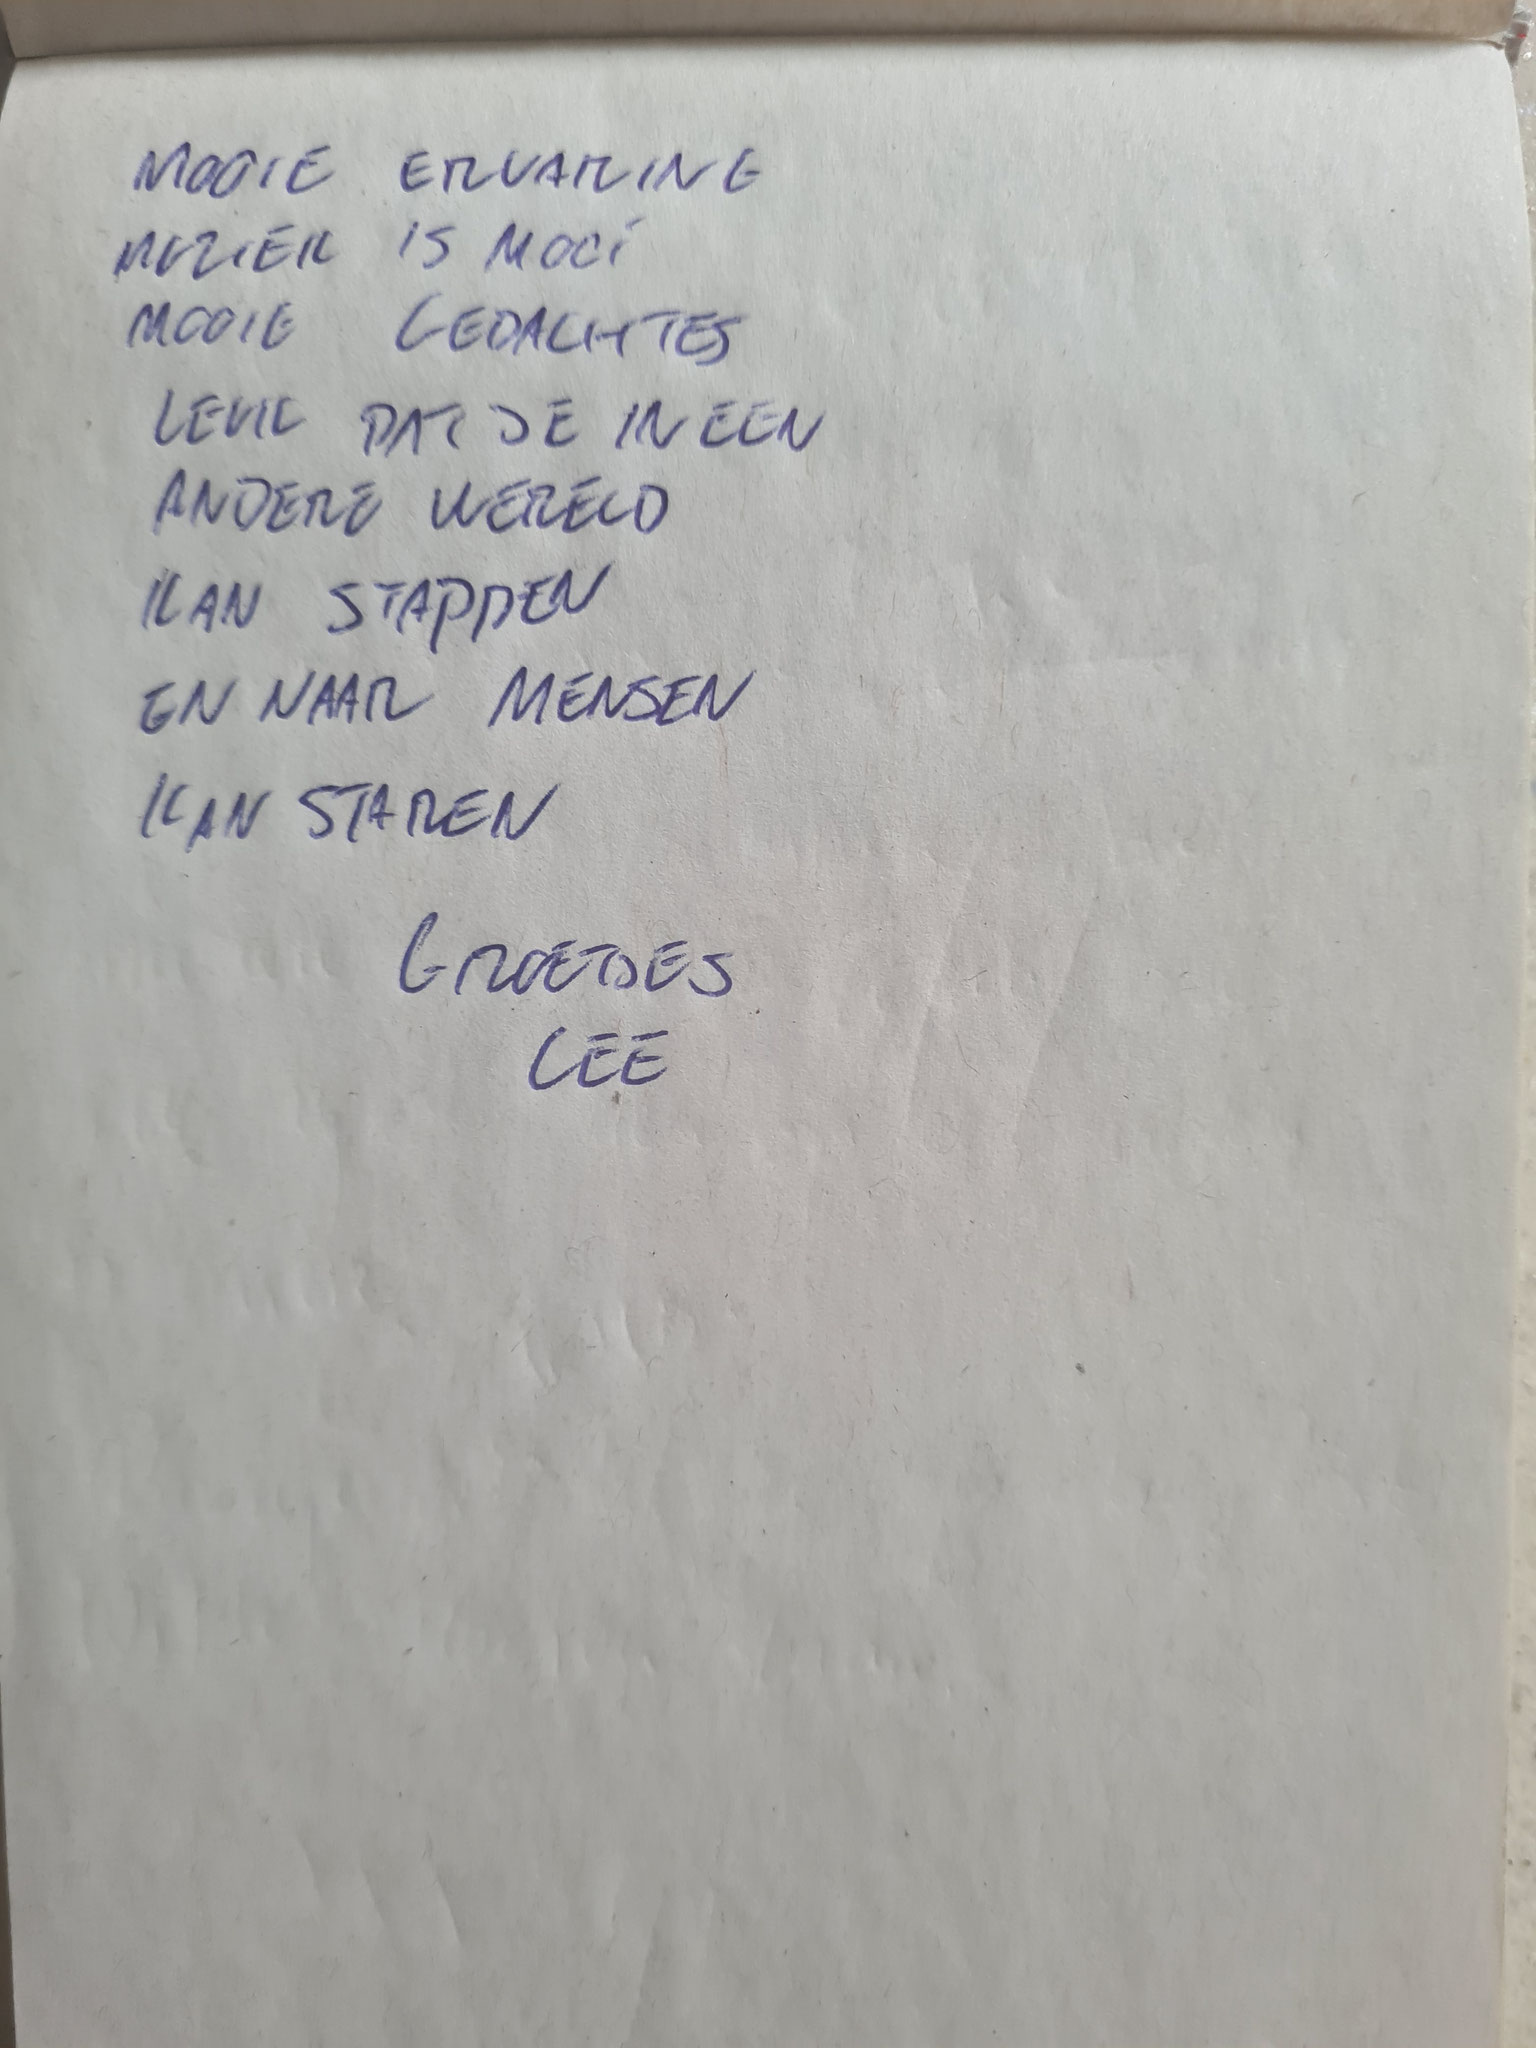 MOOIE ERVARING
MEZIEK IS MOOI
MOOIE GEDACHTES
LEUK DAT JE IN EEN
ANDERE WERELD
KAN STAPPEN
EN NAAR MENSEN
KAN STAREN
GROETJES
LEE